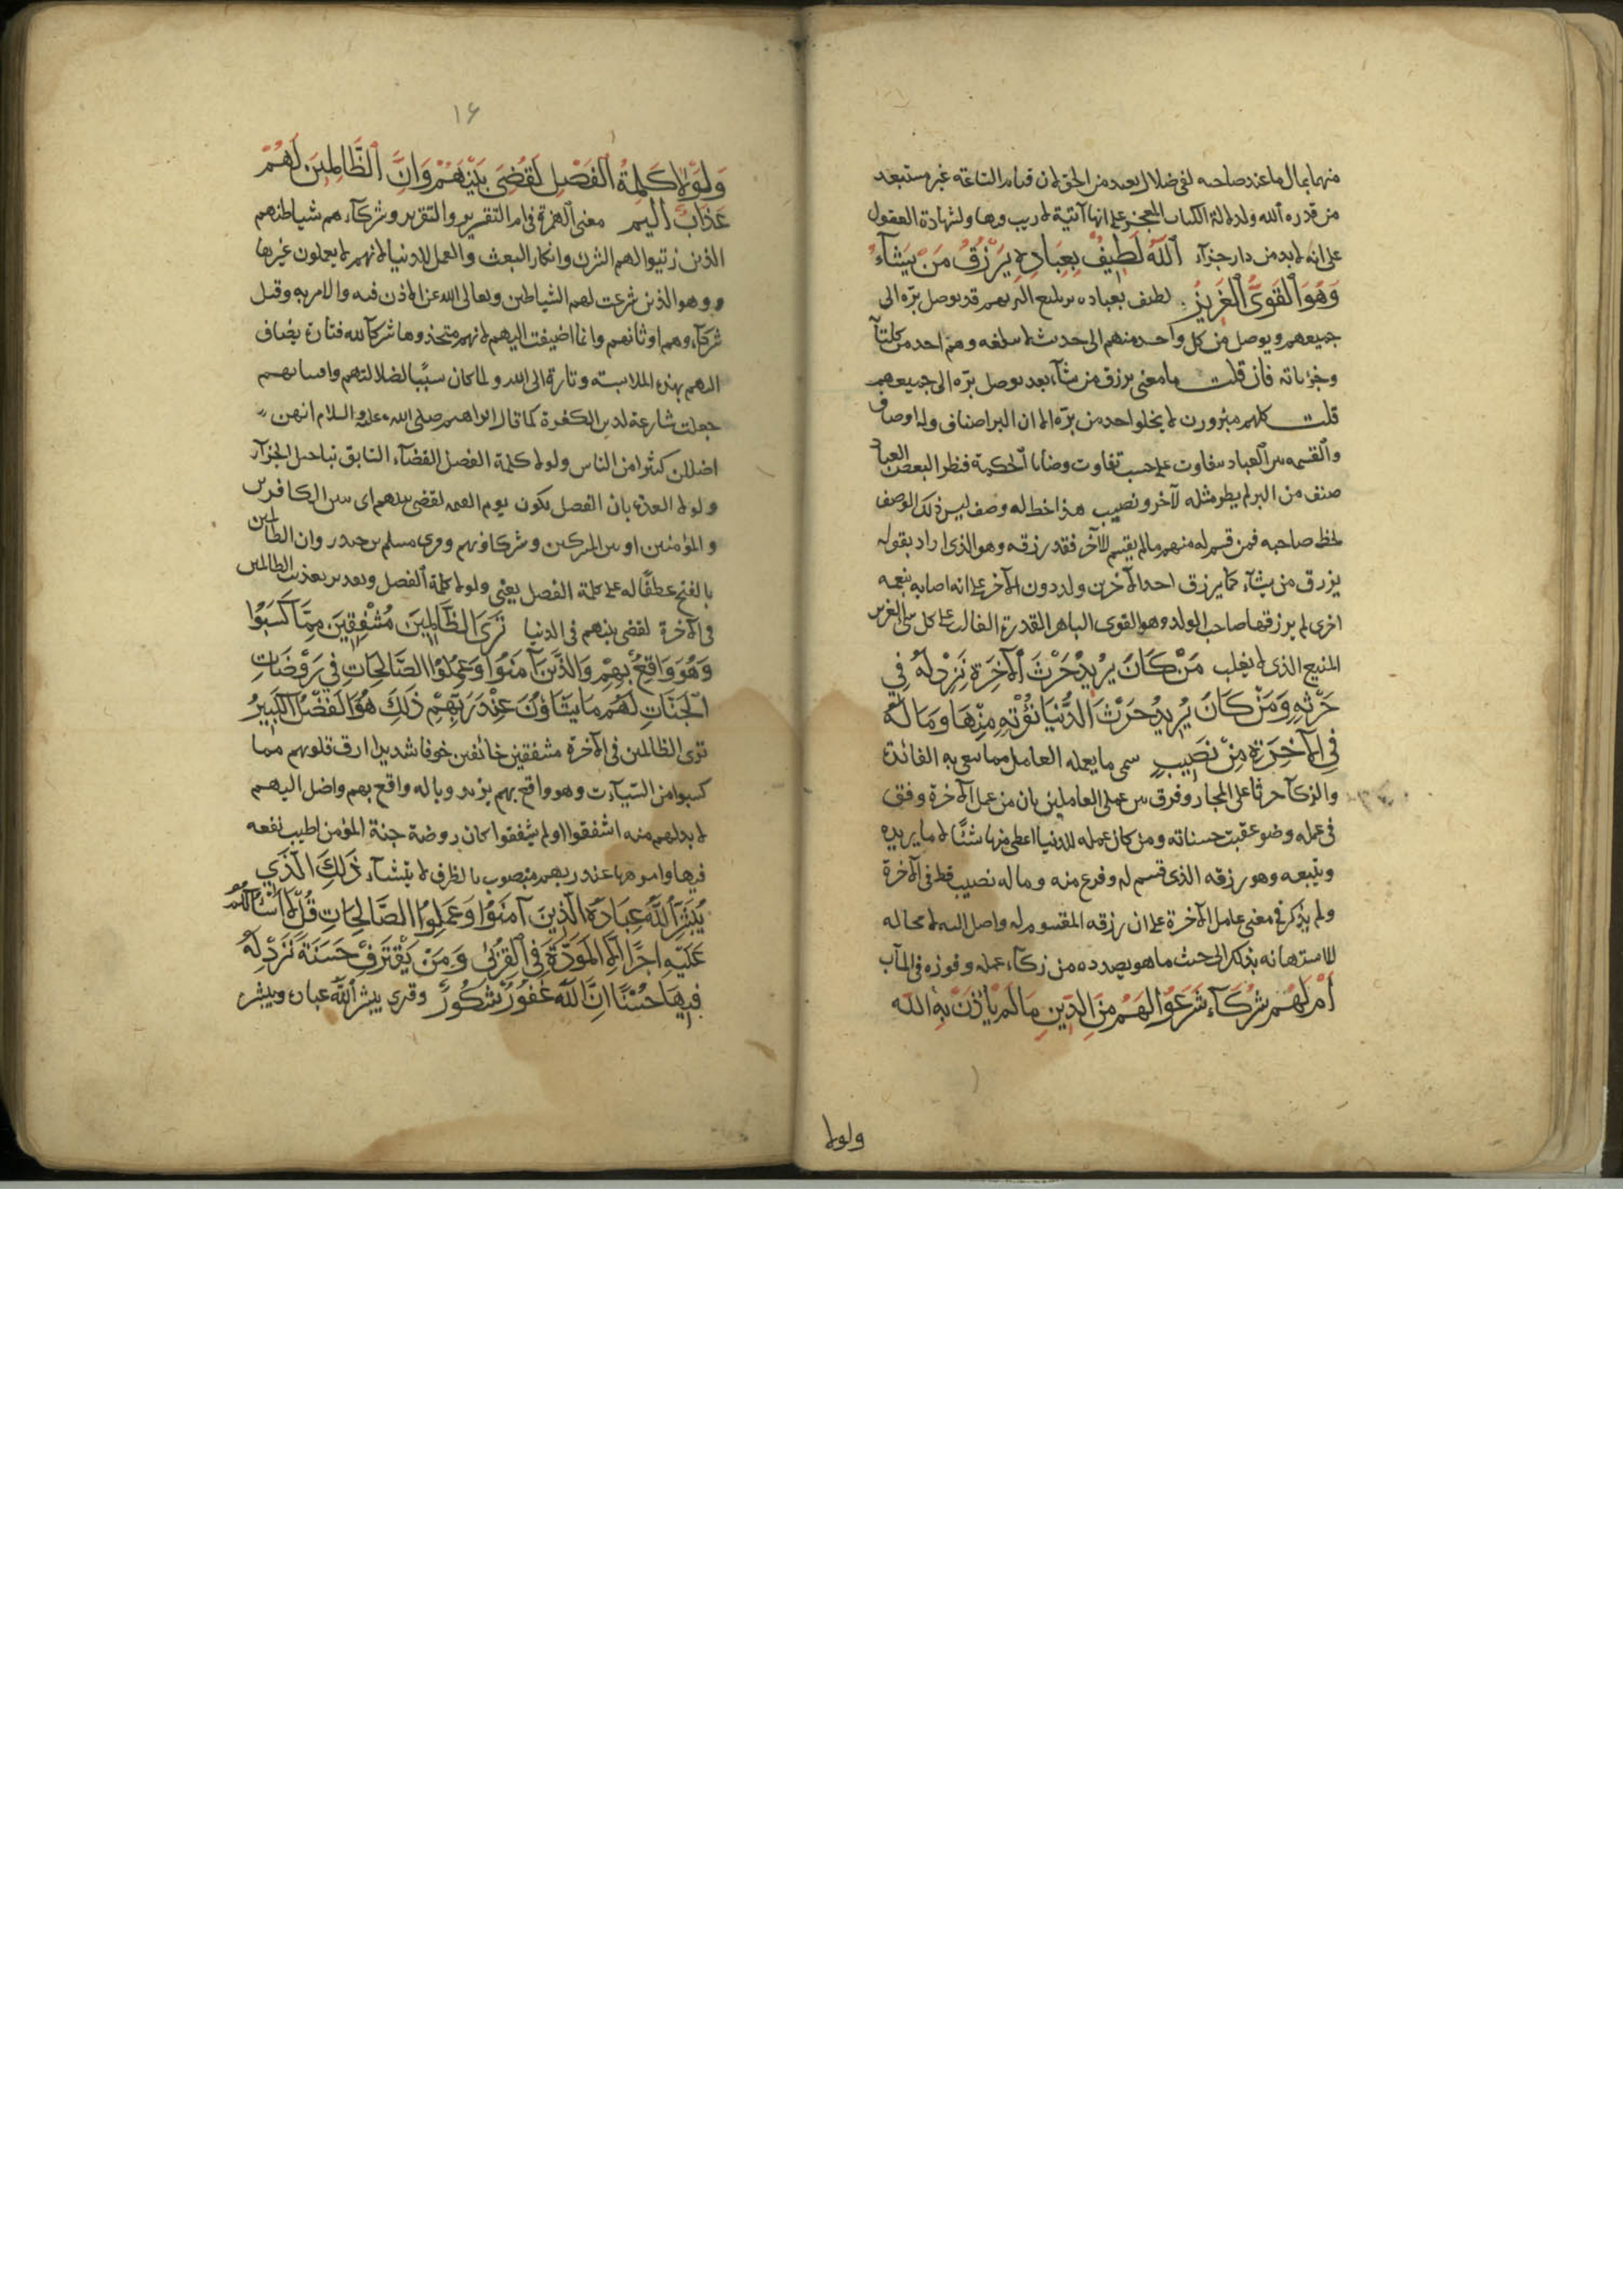 منهما بمال ما عند صاحبه لفى ضلال بعيد من الحق لان قيام الساعة غير مستبعد
من قدرة الله ولدلالة الكتاب المعجز على انها آتية لا ريب فيها ولشهادة العقول
على انه لا بد من دار جزآء اَللّٰهُ لَطِيفٌ بِعِبَادِهٖ يَرْزُقُ مَنْ يَشَآءُ
وَهُوَ الْقَوِىُّ الْعَزِيزُ لطيف بعباده بر بليغ البر بهم قد توصل برّه الى
جميعهم ويوصل من كل واحد منهم الى حيث لا يبلغه وهم احد من كليآ
وجزياته فان قلت ما معنى يرزق من يشآء بعد توصل برّه الى جميعهم
قلت كلهم مبرورون لا يخلو احد من برّه الا ان البر اصناف وله اوصاف
والقسمة بين العباد تتفاوت على حسب تفاوت قضايا الحكمة فيطر البعض العباد
صنف من البر لم يطر مثله لآخر ونصيب هذا حظ له وصف ليس ذلك الوصف
لحظ صاحبه فمن قسم له منهم ما لم يقسم للآخر فقد رزقه وهو الذى اراد بقوله
يرزق من يشآء كما يرزق احد الآخرين ولدا دون الآخر على انه اصابه بنعمه
اخرى لم يرزقها صاحب الولد وهو القوى الباهر القدرة الغالب على كل شئ العزيز
المنيع الذى لا يغلب مَنْ كَانَ يُرِيدُ حَرْثَ الْاٰخِرَةِ نَزِدْ لَهُ فِي
حَرْثِهٖ وَمَنْ كَانَ يُرِيدُ حَرْثَ الدُّنْيَا نُؤْتِهٖ مِنْهَا وَمَا لَهُ
فِى الْاٰخِرَةِ مِنْ نَصِيبٍ سمى ما يعمله العامل مما يبتغى به الفائدة
والزكآ حرثا على المجاز وفرق بين عملى العاملين بان من عمل للآخرة وفق
فى عمله وضوعفت حسناته ومن كان عمله للدنيا اعطى منها شئًا لا ما يريده
ويتبعه وهو رزقه الذى قسم له وفرغ منه وما له نصيب قط فى الآخرة
ولم يذكر فى معنى عامل الآخرة على ان رزقه المقسوم له واصل اليه لا محاله
للاستهانه بذلك الى جنب ما هو بصدده من زكآء عمله وفوزه فى المآب
اَمْ لَهُمْ شُرَكَآءُ شَرَعُوا لَهُمْ مِنَ الدِّينِ مَا لَمْ يَأْذَنْ بِهِ اللّٰه
ولولا
١٦
وَلَوْلَا كَلِمَةُ الْفَصْلِ لَقُضِىَ بَيْنَهُمْ وَاِنَّ الظَّالِمِينَ لَهُمْ
عَذَابٌ اَلِيمٌ معنى الهمزة فى ام التقرير والتقريع وشركآءهم شياطينهم
الذين زينوا لهم الشرك وانكار البعث والعمل للدنيا لانهم لا يعملون غيرها
وهو الذين شرعت لهم الشياطين وتعالى الله عن الاذن فيه والامر به وقيل
شركآءهم اوثانهم وانما اضيفت اليهم لانهم متخذوها شركآ لله فتارة يضاف
اليهم بهذه الملابسة وتارة الى الله ولما كان سببًا لضلالتهم وافتتانهم
جعلت شارعة لدين الكفرة كما قال ابراهيم صلى الله عليه والسلام انهن
اضللن كثيرا من الناس ولولا كلمة الفصل القضآء السابق بتاجيل الجزآء
ولولا العدة بان الفصل يكون يوم القيمة لقضى بينهم اى بين الكافرين
والمؤمنين او بين المشركين وشركاؤهم وقرئ مسلم بن جندب وان الظالمين
بالفتح عطفًا له على كلمة الفصل يعنى ولولا كلمة الفصل وتقدير تعذيب الظالمين
فى الآخرة لقضى بينهم فى الدنيا تَرَى الظَّالِمِينَ مُشْفِقِينَ مِمَّا كَسَبُوا
وَهُوَ وَاقِعٌ بِهِمْ وَالَّذِينَ آمَنُوا وَعَمِلُوا الصَّالِحَاتِ فِي رَوْضَاتِ
الْجَنَّاتِ لَهُمْ مَا يَشَاؤُنَ عِنْدَ رَبِّهِمْ ذٰلِكَ هُوَ الْفَضْلُ الْكَبِيرُ
ترى الظالمين فى الآخرة مشفقين خائفين خوفا شديدا ارق قلوبهم مما
كسبوا من السيآت وهو واقع بهم يريد وباله واقع بهم واصل اليهم
لا بد لهم منه اشفقوا او لم يشفقوا كان روضة جنة المؤمن اطيب بقعه
فيها وانزهها عند ربهم منصوب بالظرف لا بيشآء ذٰلِكَ الَّذِي
يُبَشِّرُ اللّٰهُ عِبَادَهُ الَّذِينَ آمَنُوا وَعَمِلُوا الصَّالِحَاتِ قُلْ لَا اَسْئَالُكُمْ
عَلَيْهِ اَجْرًا اِلَّا الْمَوَدَّةَ فِى الْقُرْبٰى وَمَنْ يَقْتَرِفْ حَسَنَةً نَزِدْ لَهُ
فِيهَا حُسْنًا اِنَّ اللّٰهَ غَفُورٌ شَكُورٌ وقرئ يبشر الله عباده ويبشر